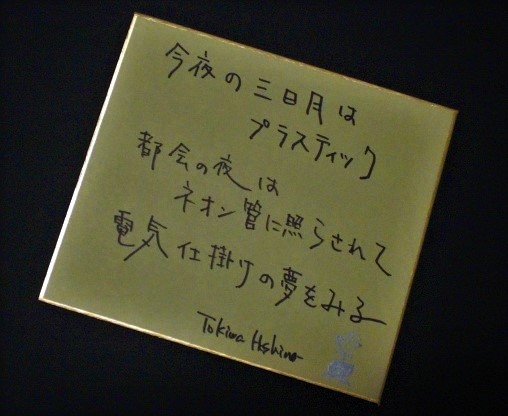 今夜の三日月は
プラスティック
都会の夜は
ネオン管に照らされて
電気仕掛けの夢をみる
Tokiwa Hoshino